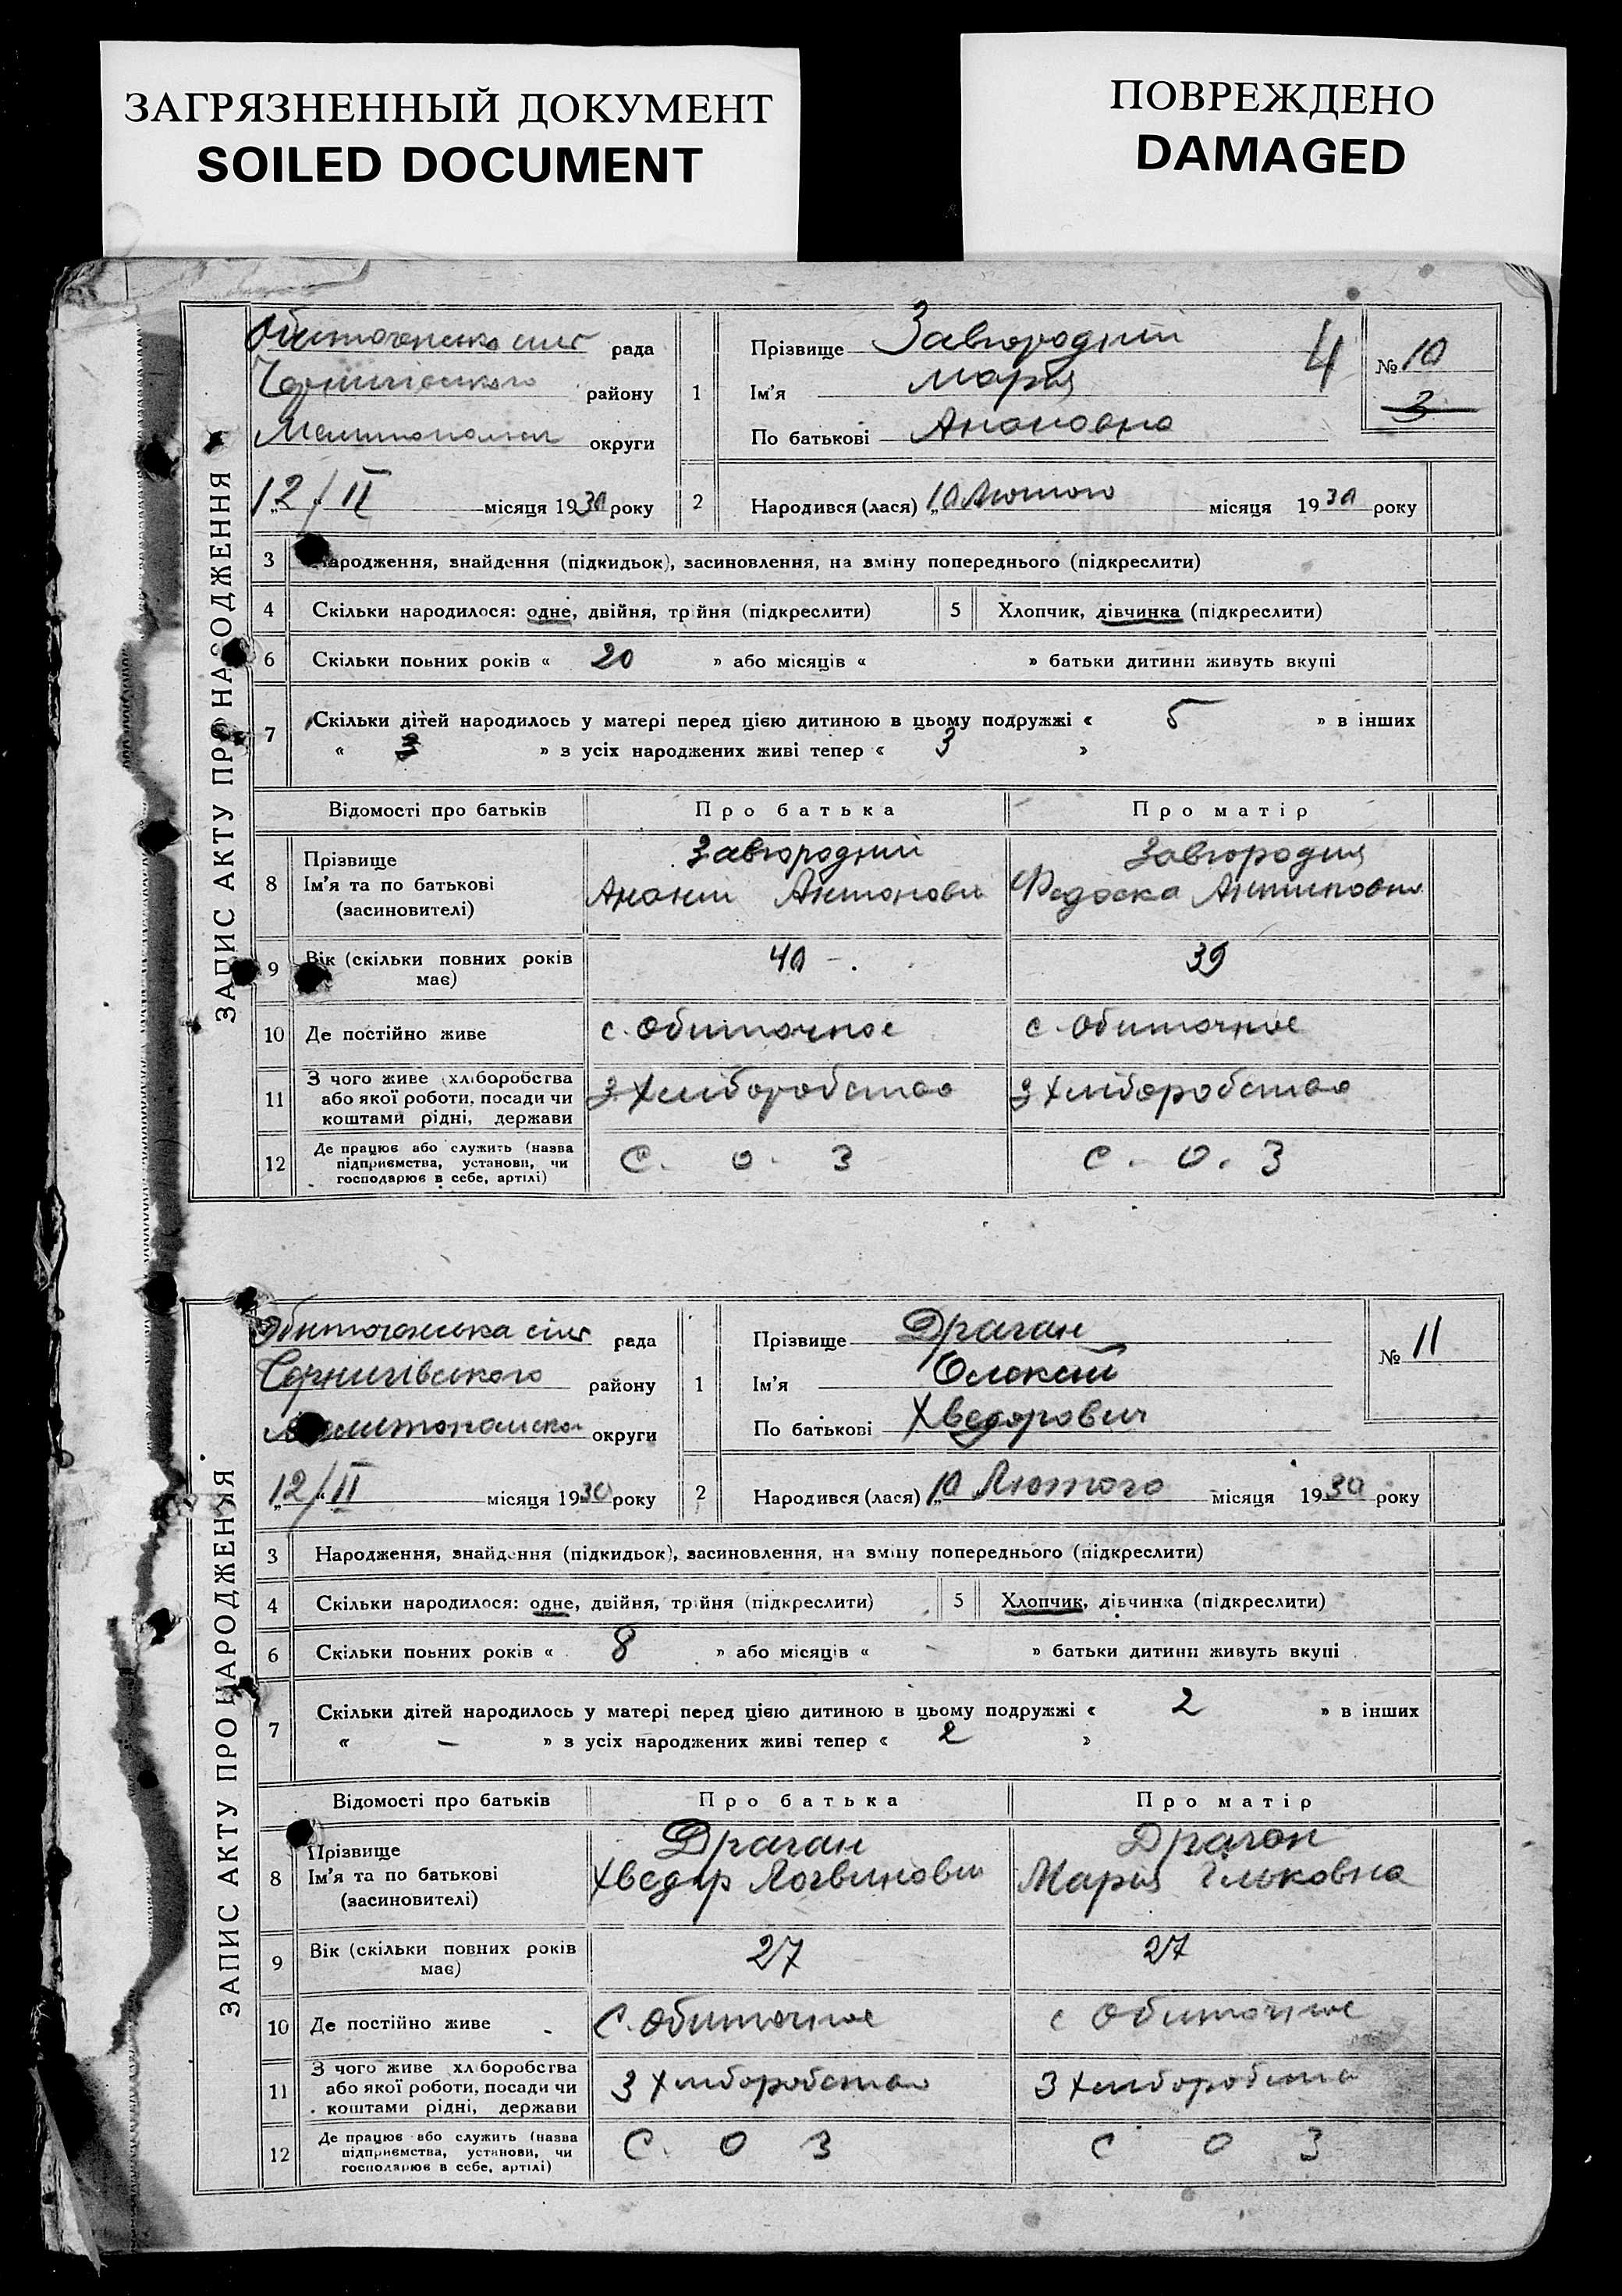 ЗАГРЯЗНЕННЫЙ ДОКУМЕНТ
SOILED DOCUMENT
ПОВРЕЖДЕНО
DAMAGED
ЗАПИС АКТУ ПРО НАРОДЖЕННЯ
рада
Чернигівського району
округи
12/II місяця 1930 року
1
Прізвище Завгородній
Ім'я Мария
По батькові
4
№ 10
3
2
Народився (лася) „10 Лютого місяця 1930 року
3 Народження, знайдення (підкидьок), засиновлення, на зміну попереднього (підкреслити)
4 Скільки народилося: одне, двійня, трійня (підкреслити)
5 Хлопчик, дівчинка (підкреслити)
6 Скільки повних років « 20 » або місяців « » батьки дитини живуть вкупі
7 Скільки дітей народилось у матері перед цією дитиною в цьому подружжі « 5 » в інших
« 3 » з усіх народжених живі тепер « 3 »
Відомості про батьків
Про батька
Про матір
8 Прізвище
Ім'я та по батькові
(засиновителі)
Завгородний
Ананий Антонови
Завгородня
Федоска Антиповна
9 Вік (скільки повних років
має)
40 -.
39
10 Де постійно живе
с. Обиточное
с. Обиточное
11 З чого живе (хліборобства
або якої роботи, посади чи
коштами рідні, держави
З Хліборобства
З Хліборобства
12 Де працює або служить (назва
підприємства, установи, чи
господарює в себе, артілі)
С. О. З
С. О. З
ЗАПИС АКТУ ПРО НАРОДЖЕННЯ
Обиточанська сіль рада
Чернигівського району
округи
„12/II місяця 1930 року
1
Прізвище Драган
Ім'я Олексій
По батькові Хведорович
№ 11
2
Народився (лася) „10 Лютого місяця 1930 року
3 Народження, знайдення (підкидьок), засиновлення, на зміну попереднього (підкреслити)
4 Скільки народилося: одне, двійня, трійня (підкреслити)
5 Хлопчик, дівчинка (підкреслити)
6 Скільки повних років « 8 » або місяців « - » батьки дитини живуть вкупі
7 Скільки дітей народилось у матері перед цією дитиною в цьому подружжі « 2 » в інших
« - » з усіх народжених живі тепер « 2 »
Відомості про батьків
Про батька
Про матір
8 Прізвище
Ім'я та по батькові
(засиновителі)
Драган
Хведір Логвинови
Драган
Мария Ільковна
9 Вік (скільки повних років
має)
27
27
10 Де постійно живе
С. Обиточное
с Обиточное
11 З чого живе (хліборобства
або якої роботи, посади чи
коштами рідні, держави
З Хліборобства
З Хліборобства
12 Де працює або служить (назва
підприємства, установи, чи
господарює в себе, артілі)
С. О З
С О З